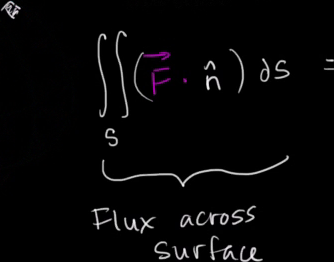 ∬ (F⃗ · n̂) dS =
S
Flux across
surface